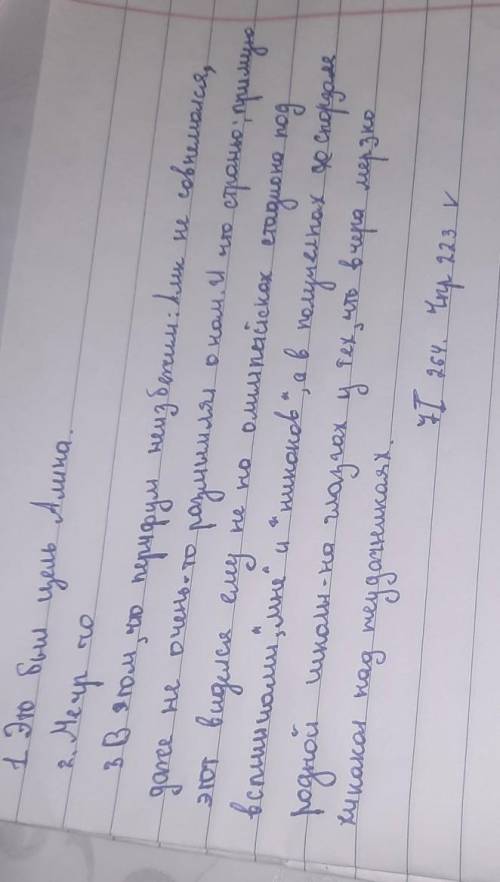 1. Это был цель Алика.
2. Мечр то
3. В этом, что перифум неизбежин: Алик не совнемался,
даже не очень-то размишлял о ном. И что странно, примую
этот виделся ему не на олимпийских стадиона под
вспишками, "мне" и "никонов", а в полупетнах
родной школи - на глазах у тех, что вчера мерзко
хихикал над неудачникаях.
7I 264. Чпр 223 V